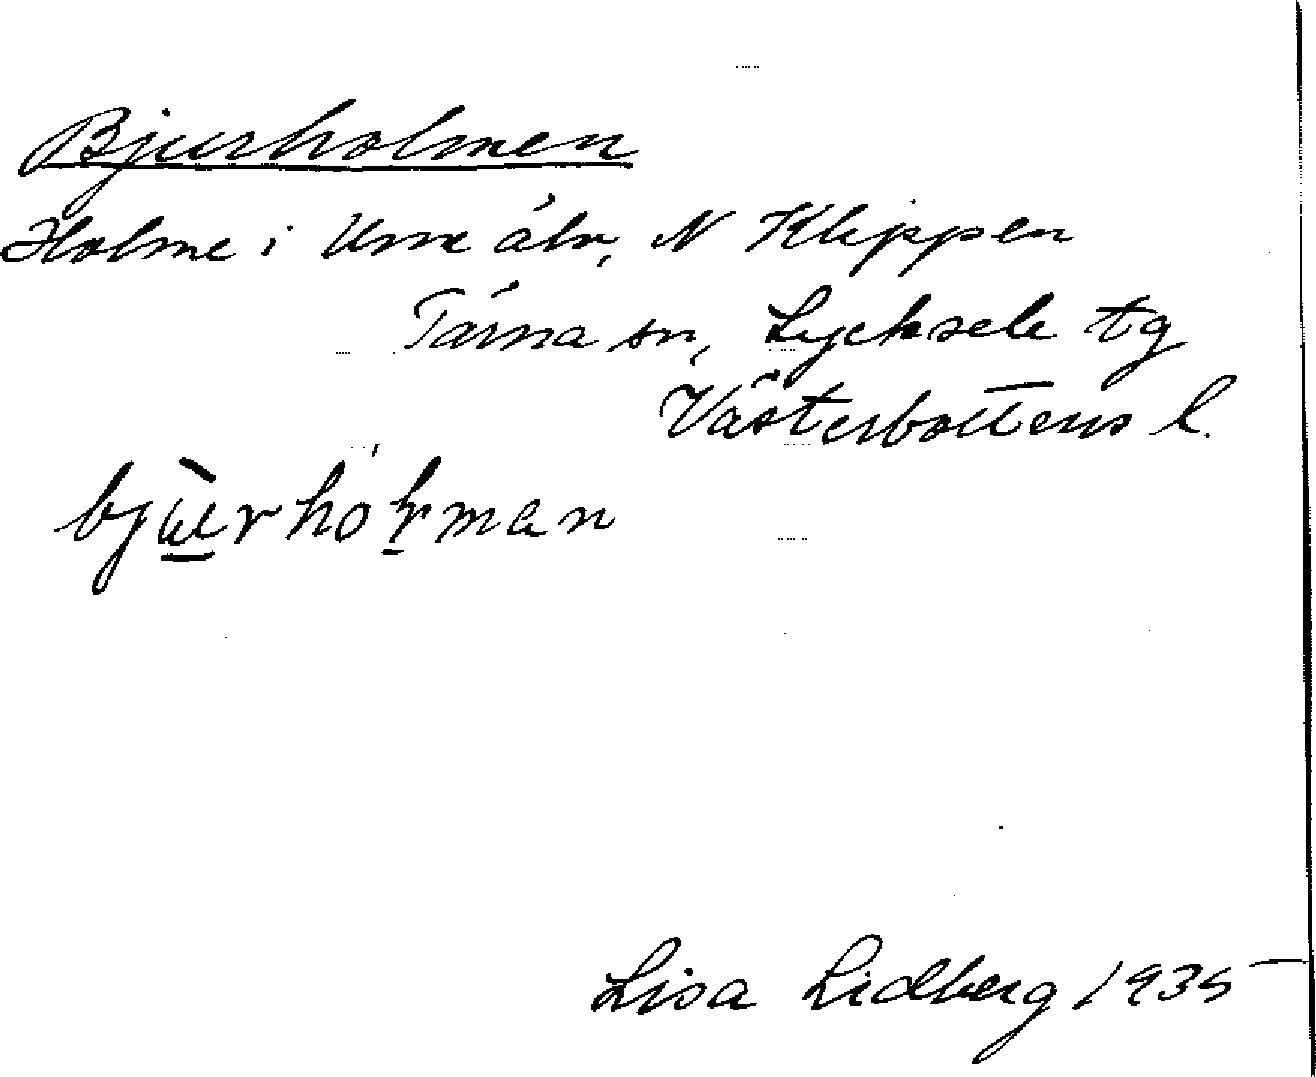 Bjurholmen
Holme i Ume älv, N Klippen
Tärna sn, Lycksele tg
Västerbottens l.
Lisa Lidberg 1935